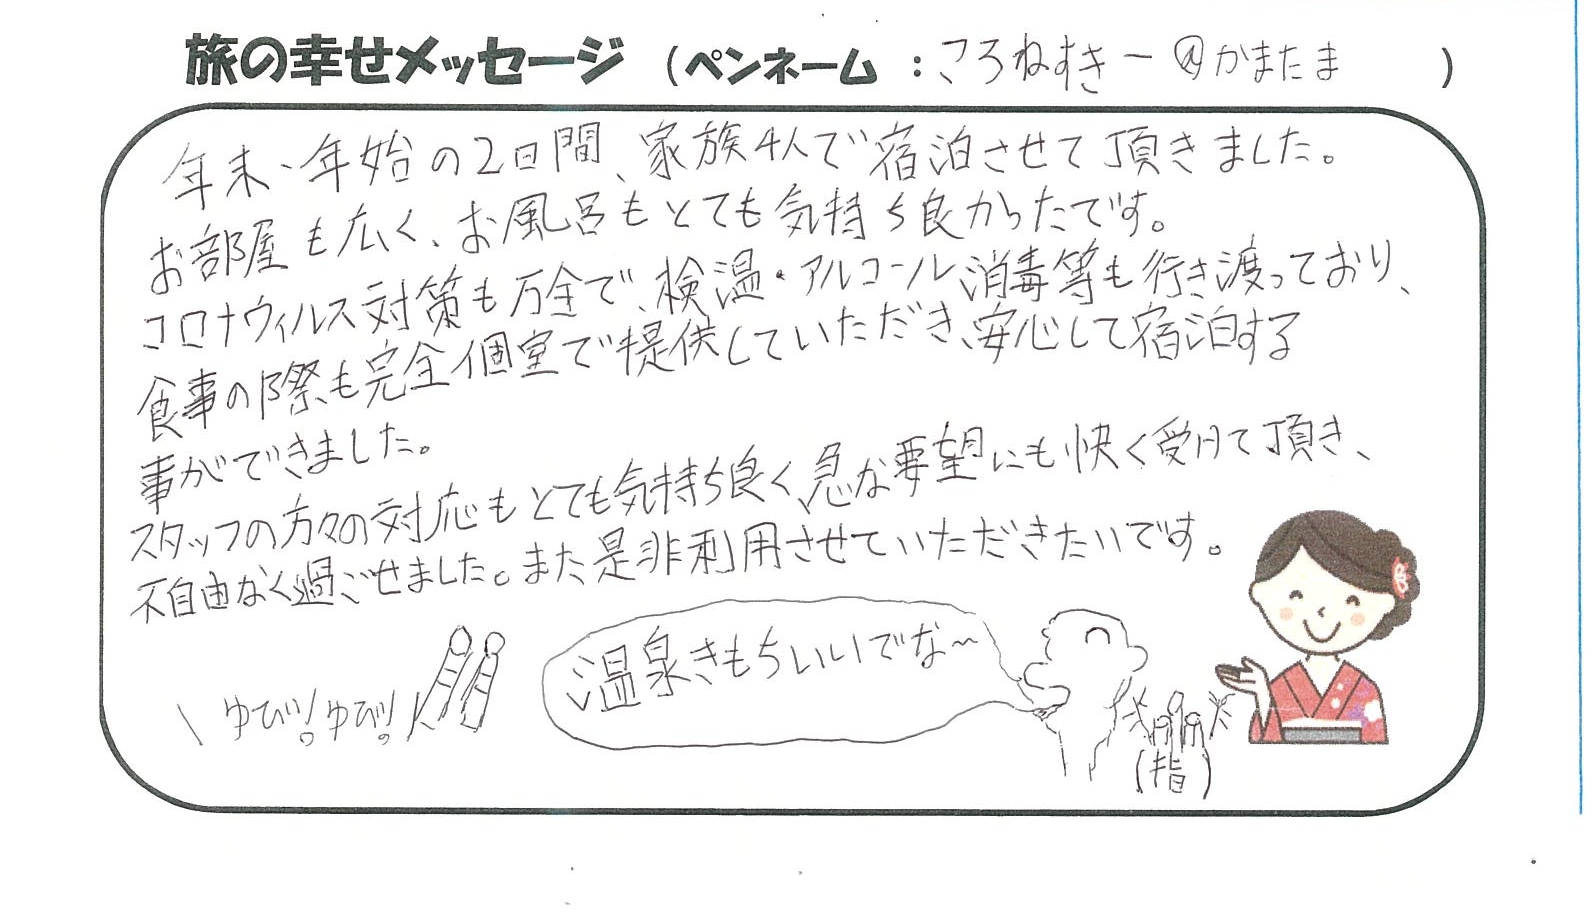 旅の幸せメッセージ (ペンネーム : ころねすきー@かまたま )
年末・年始の2日間、家族4人で宿泊させて頂きました。
お部屋も広く、お風呂もとても気持ち良かったです。
コロナウィルス対策も万全で、検温・アルコール消毒等も行き渡っており、
食事の際も完全個室で提供していただき、安心して宿泊する
事ができました。
スタッフの方々の対応もとても気持ち良く、急な要望にも快く受けて頂き、
不自由なく過ごせました。また是非利用させていただきたいです。
\ ゆび!ゆび! /
温泉きもちいいでな〜
(指)